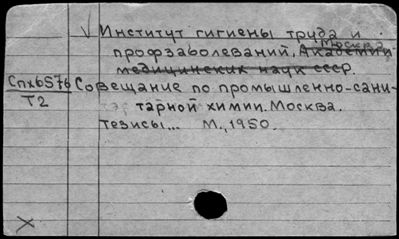 Институт гигиены труда и
профзаболеваний, Москва. Академии
медицинских наук СССР.
Спхб576
Т2
Совещание по промышленно-сани-
тарной химии. Москва.
Тезисы... М., 1950.